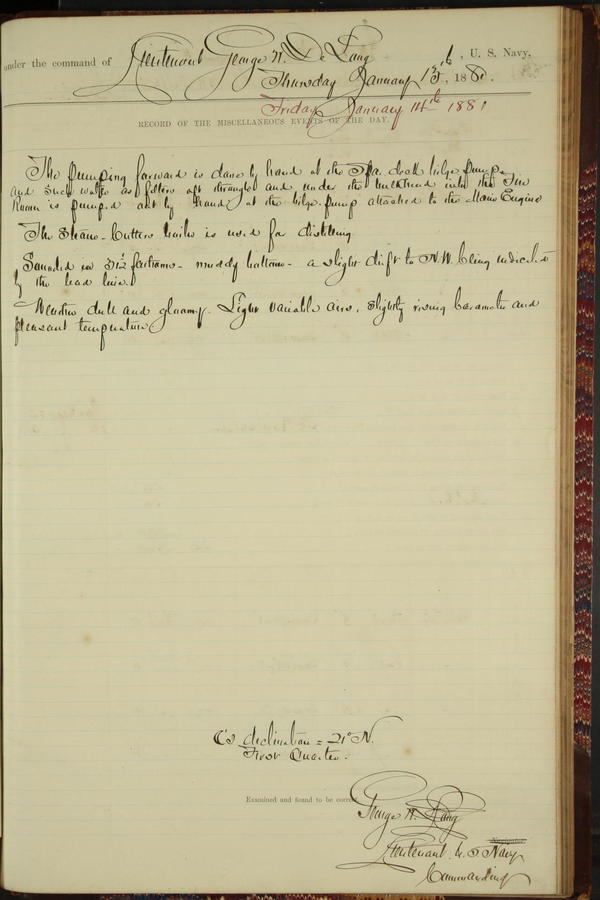 under the command of Lieutenant George W. De Long, U. S. Navy.
Thursday January 13th, 1881.
Friday January 14th 1881
RECORD OF THE MISCELLANEOUS EVENTS OF THE DAY.
The pumping forward is done by hand at the Spar deck bilge pump,
and such water as filters aft through and under the bulkhead into the Fire
Room is pumped out by hand at the bilge pump attached to the Main Engine
The Steam-Cutters boiler is used for distilling.
Sounded in 31½ fathoms - muddy bottom - a slight drift to N.W. being indicated
by the lead line.
Weather dull and gloomy. Light variable airs, slightly rising barometer and
pleasant temperature
☾'s declination = 21° N.
First Quarter.
Examined and found to be correct.
George W. De Long
Lieutenant U. S. Navy
Commanding